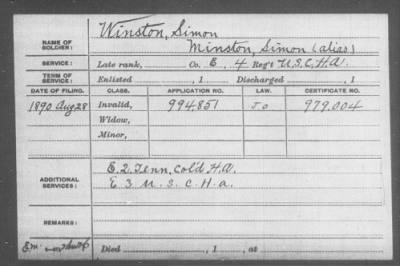 NAME OF SOLDIER: Winston, Simon
Minston, Simon (alias)
SERVICE: Late rank, Co. E, 4 Reg't U.S.C.H.A.
TERM OF SERVICE: Enlisted , 1 Discharged , 1
DATE OF FILING. CLASS. APPLICATION NO. LAW. CERTIFICATE NO.
1890 Aug 28 Invalid, 994,851 J.O 979.004
Widow,
Minor,
ADDITIONAL SERVICES: E. 2. Tenn. Col'd H.A.
E 3 U.S.C.H.a.
REMARKS:
Died , 1 , at